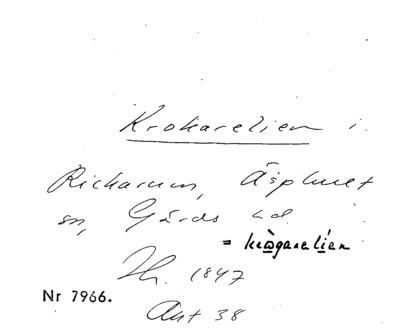 Krokarelien i.
Rickarum, Äsphult
sn, Gärds hd.
= krågarelien
Th. 1847
Nr 7966.
Ant 38